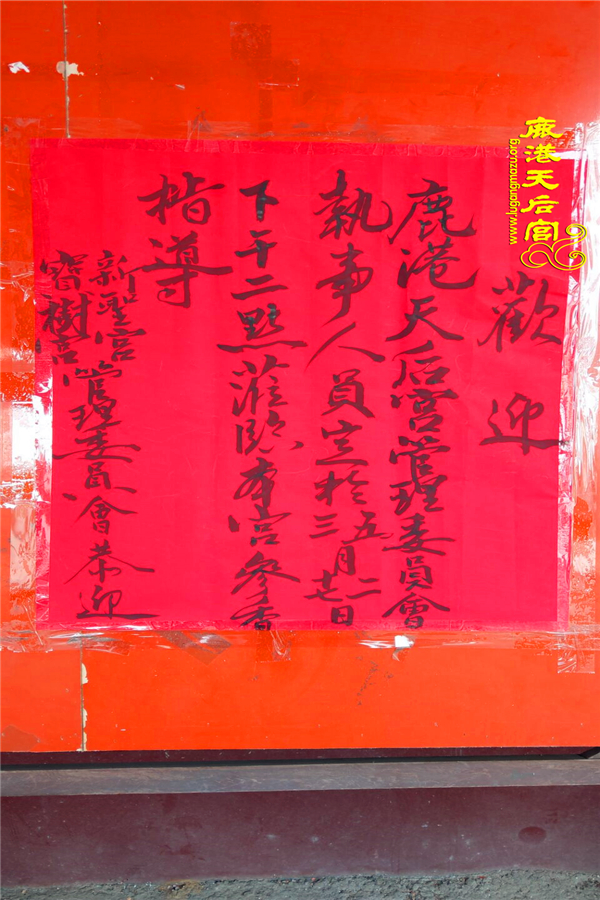 鹿港天后宮
www.lugangmazu.org
歡迎
鹿港天后宮管理委員會
執事人員定於五三月二日
下午二點蒞臨本宮參香
指導
新聖宮
寶樹宮
管理委員會恭迎